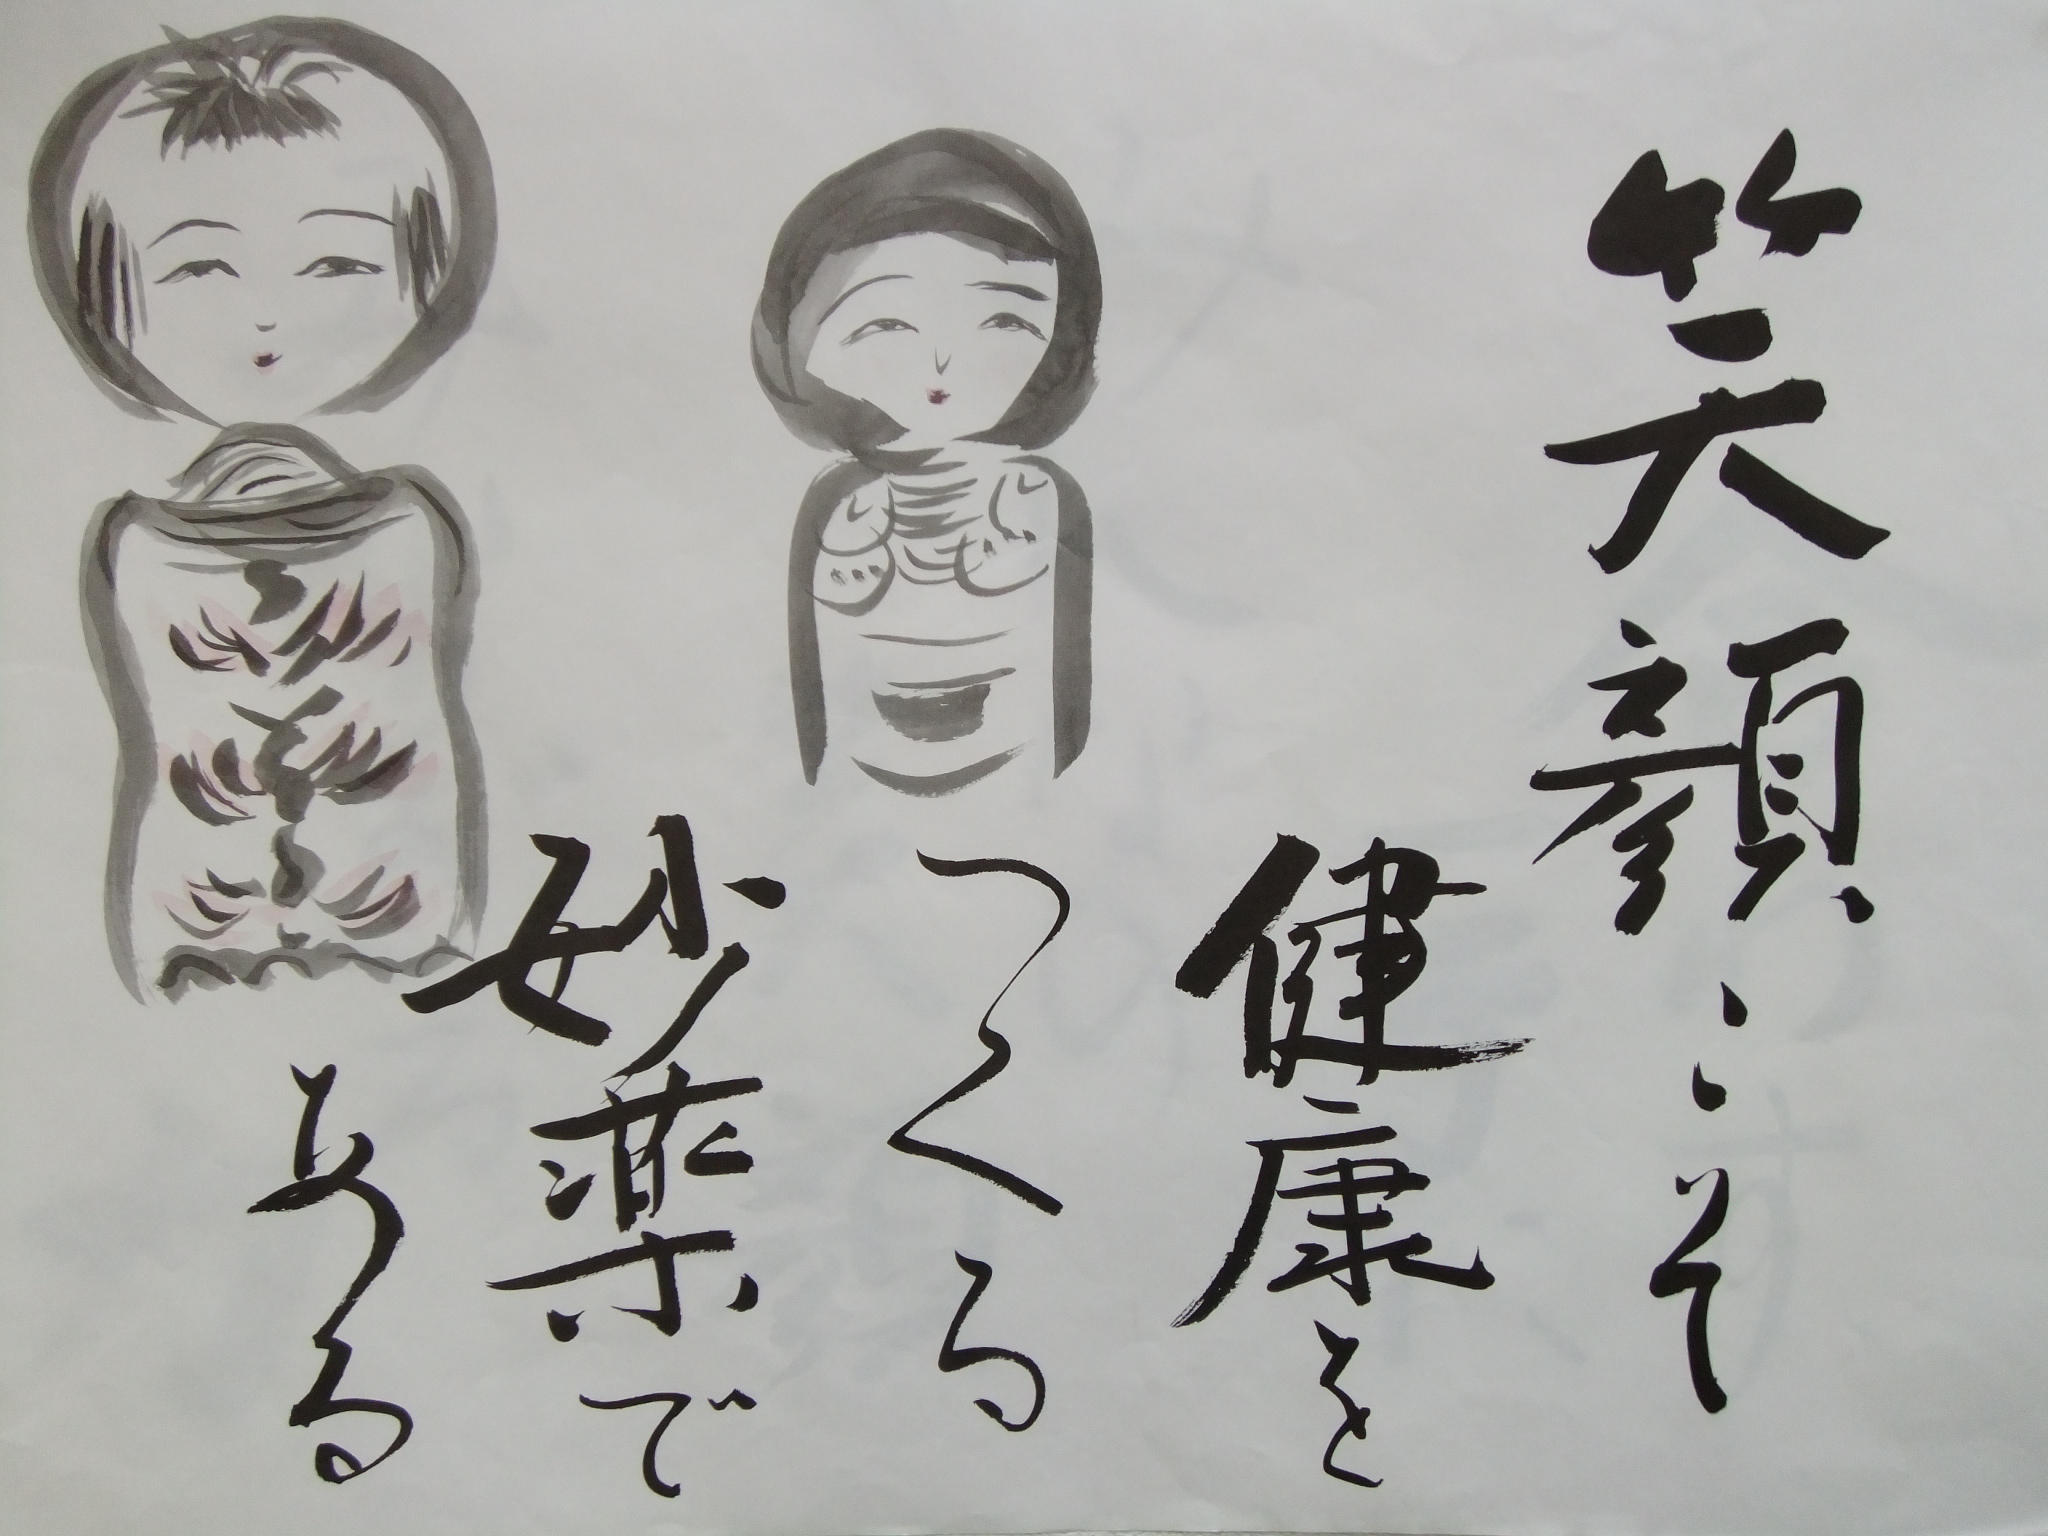 笑顔こそ
健康を
つくる
妙薬で
ある